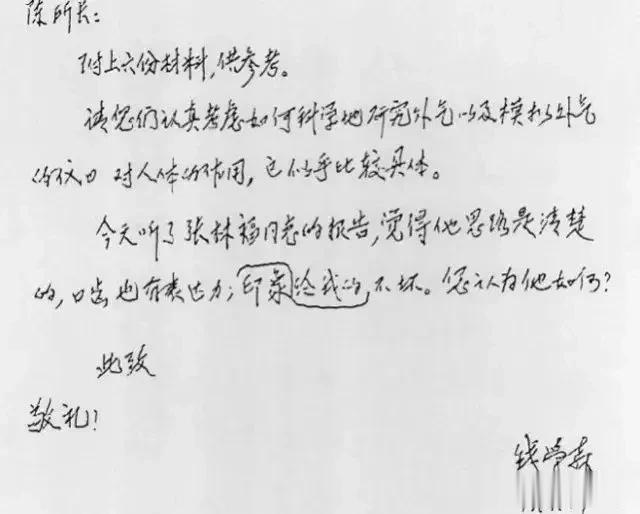 陈所长：
附上六份材料，供参考。
请您们认真考虑如何科学地研究外气以及模拟外气
的仪口对人体的作用，它似乎比较具体。
今天听了张林福同志的报告，觉得他思路是清楚
的，口齿也有表达力；印象给我的，不坏。您认为他如何？
此致
敬礼！
钱学森